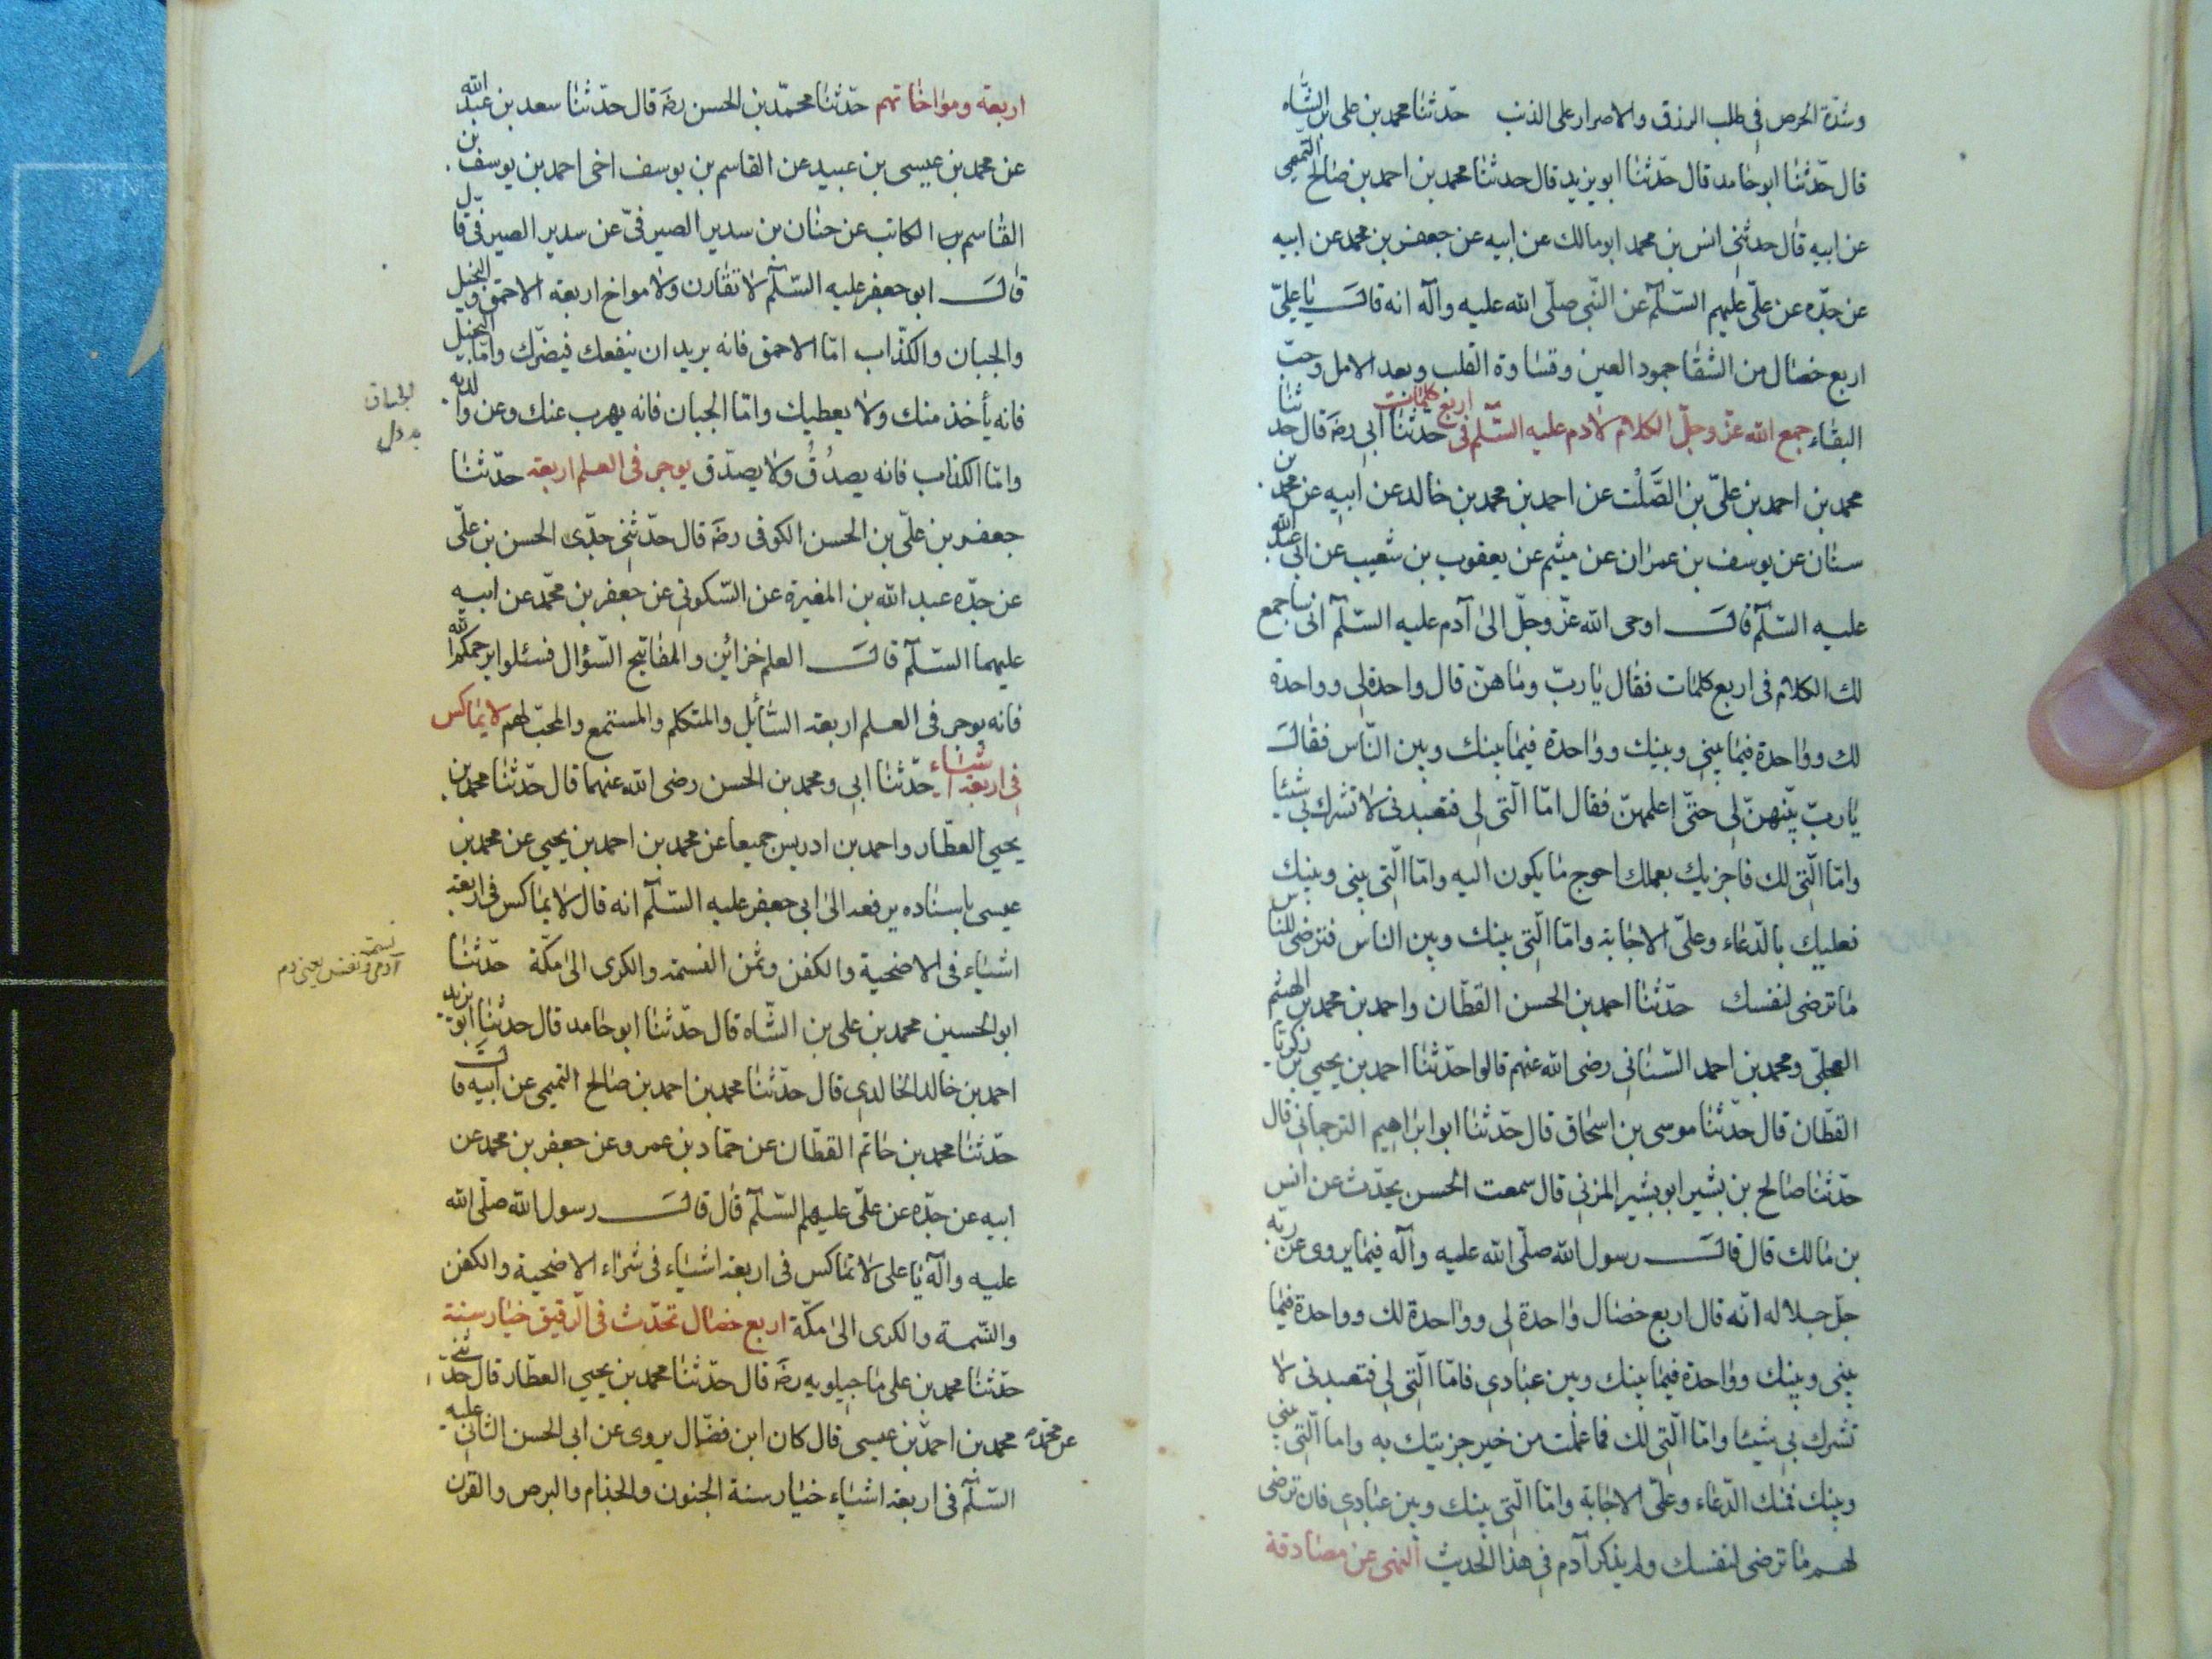 وشدّة الحرص فى طلب الرزق والاصرار على الذنب حدّثنا محمد بن على بن الشّاه
قال حدّثنا ابو حامد قال حدّثنا ابو يزيد قال حدثنا محمد بن احمد بن صالح التميمى
عن ابيه قال حدثنى انس بن محمد ابو مالك عن ابيه عن جعفر بن محمد عن ابيه
عن جدّه عن علىّ عليهم السّلم عن النّبى صلّى الله عليه وآله انه قال يا علىّ
اربع خصال من الشقا جمود العين وقساوة القلب وبعد الامل وحبّ
البقاء جمع الله عزّ وجلّ الكلام لادم عليه السّلم فى اربع كلمات حدّثنا ابى رضه قال حدثنا
محمد بن احمد بن علىّ بن الصَّلْت عن احمد بن محمد بن خالد عن ابيه عن محمد بن
سنان عن يوسف بن عمران عن ميثم عن يعقوب بن شعيب عن ابى عبد الله
عليه السّلم قال اوحى الله عزّ وجلّ الى آدم عليه السّلم انى ساجمع
لك الكلام فى اربع كلمات فقال يا ربّ وما هنّ قال واحدة لى وواحدة
لك وواحدة فيما بينى وبينك وواحدة فيما بينك وبين النّاس فقال
يا ربّ بيّنهنّ لى حتّى اعلمهنّ فقال امّا الّتى لى فتعبدنى لا تشرك بى شيئا
وامّا الّتى لك فاجزيك بعملك احوج ما يكون اليه وامّا الّتى بينى وبينك
فعليك بالدّعاء وعلىّ الاجابة وامّا الّتى بينك وبين الناس فترضى للناس
ما ترضى لنفسك حدّثنا احمد بن الحسن القطّان واحمد بن محمد بن الهيثم
العجلىّ ومحمد بن احمد السّنانى رضى الله عنهم قالوا حدّثنا احمد بن يحيى بن زكريّا
القطّان قال حدّثنا موسى بن اسحاق قال حدّثنا ابو ابراهيم الترجمانى قال
حدّثنا صالح بن بشير ابو بشير المزنى قال سمعت الحسن يحدّث عن انس
بن مالك قال قال رسول الله صلّى الله عليه وآله فيما يروى عن ربّه
جلّ جلاله انّه قال اربع خصال واحدة لى وواحدة لك وواحدة فيما
بينى وبينك وواحدة فيما بينك وبين عبادى فامّا الّتى لى فتعبدنى لا
تشرك بى شيئا وامّا الّتى لك فما عملت من خير جزيتك به واما الّتى بينى
وبينك فمنك الدّعاء وعلىّ الاجابة وامّا الّتى بينك وبين عبادى فان ترضى
لهم ما ترضى لنفسك ولم يذكر آدم فى هذا الحديث النهى عن مصادقة
اربعة ومواخاتهم حدّثنا محمّد بن الحسن رضه قال حدّثنا سعد بن عبد الله
عن محمد بن عيسى بن عبيد عن القاسم بن يوسف اخى احمد بن يوسف بن
القاسم الكاتب عن حنان بن سدير الصيرفىّ عن سدير الصيرفىّ قال
قال ابو جعفر عليه السّلم لا تقارن ولا مواخ اربعة الاحمق والبخيل
والجبان والكذّاب امّا الاحمق فانه يريد ان ينفعك فيضرّك وامّا البخيل
فانه يأخذ منك ولا يعطيك وامّا الجبان فانه يهرب عنك وعن والديه
وامّا الكذاب فانه يصدُقُ ولا يصدّق يوجر فى العلم اربعة حدّثنا
جعفر بن علىّ بن الحسن الكوفى رضه قال حدّثنى جدّى الحسن بن علىّ
عن جدّه عبد الله بن المغيرة عن السّكونى عن جعفر بن محمّد عن ابيه
عليهما السّلم قال العلم خزائن والمفاتيح السّؤال فسئلوا يرحمكم الله
فانه يوجر فى العلم اربعة السّائل والمتكلم والمستمع والمحبّ لهم لا يماكس
فى اربعة اشياء حدّثنا ابى ومحمد بن الحسن رضى الله عنهما قال حدّثنا محمد بن
يحيى العطّار واحمد بن ادريس جميعا عن محمد بن احمد بن يحيى عن محمد بن
عيسى باسناده يرفعه الى ابى جعفر عليه السّلم انه قال لا يماكس فى اربعة
اشياء فى الاضحية والكفن وثمن النسمة والكرى الى مكّة حدّثنا
ابو الحسين محمد بن على بن الشّاه قال حدّثنا ابو حامد قال حدثنا ابو يزيد
احمد بن خالد الخالدى قال حدّثنا محمد بن احمد بن صالح التميمى عن ابيه قال
حدّثنا محمد بن حاتم القطّان عن حمّاد بن عمرو عن جعفر بن محمد عن
ابيه عن جدّه عن علىّ عليهم السّلم قال قال رسول الله صلّى الله
عليه وآله يا على لا تماكس فى اربعة اشياء فى شراء الاضحية والكفن
والنّسمة والكرى الى مكّة اربع خصال تحدّث فى الرّقيق خيار سنة
حدّثنا محمد بن على ماجيلويه رضه قال حدّثنا محمد بن يحيى العطّار قال حدّثنى
محمد بن احمد عن محمّد بن عيسى قال كان ابن فضّال يروى عن ابى الحسن الثانى عليه
السّلم فى اربعة اشياء خيار سنة الجنون والجذام والبرص والقرن
الجبان
نسمة